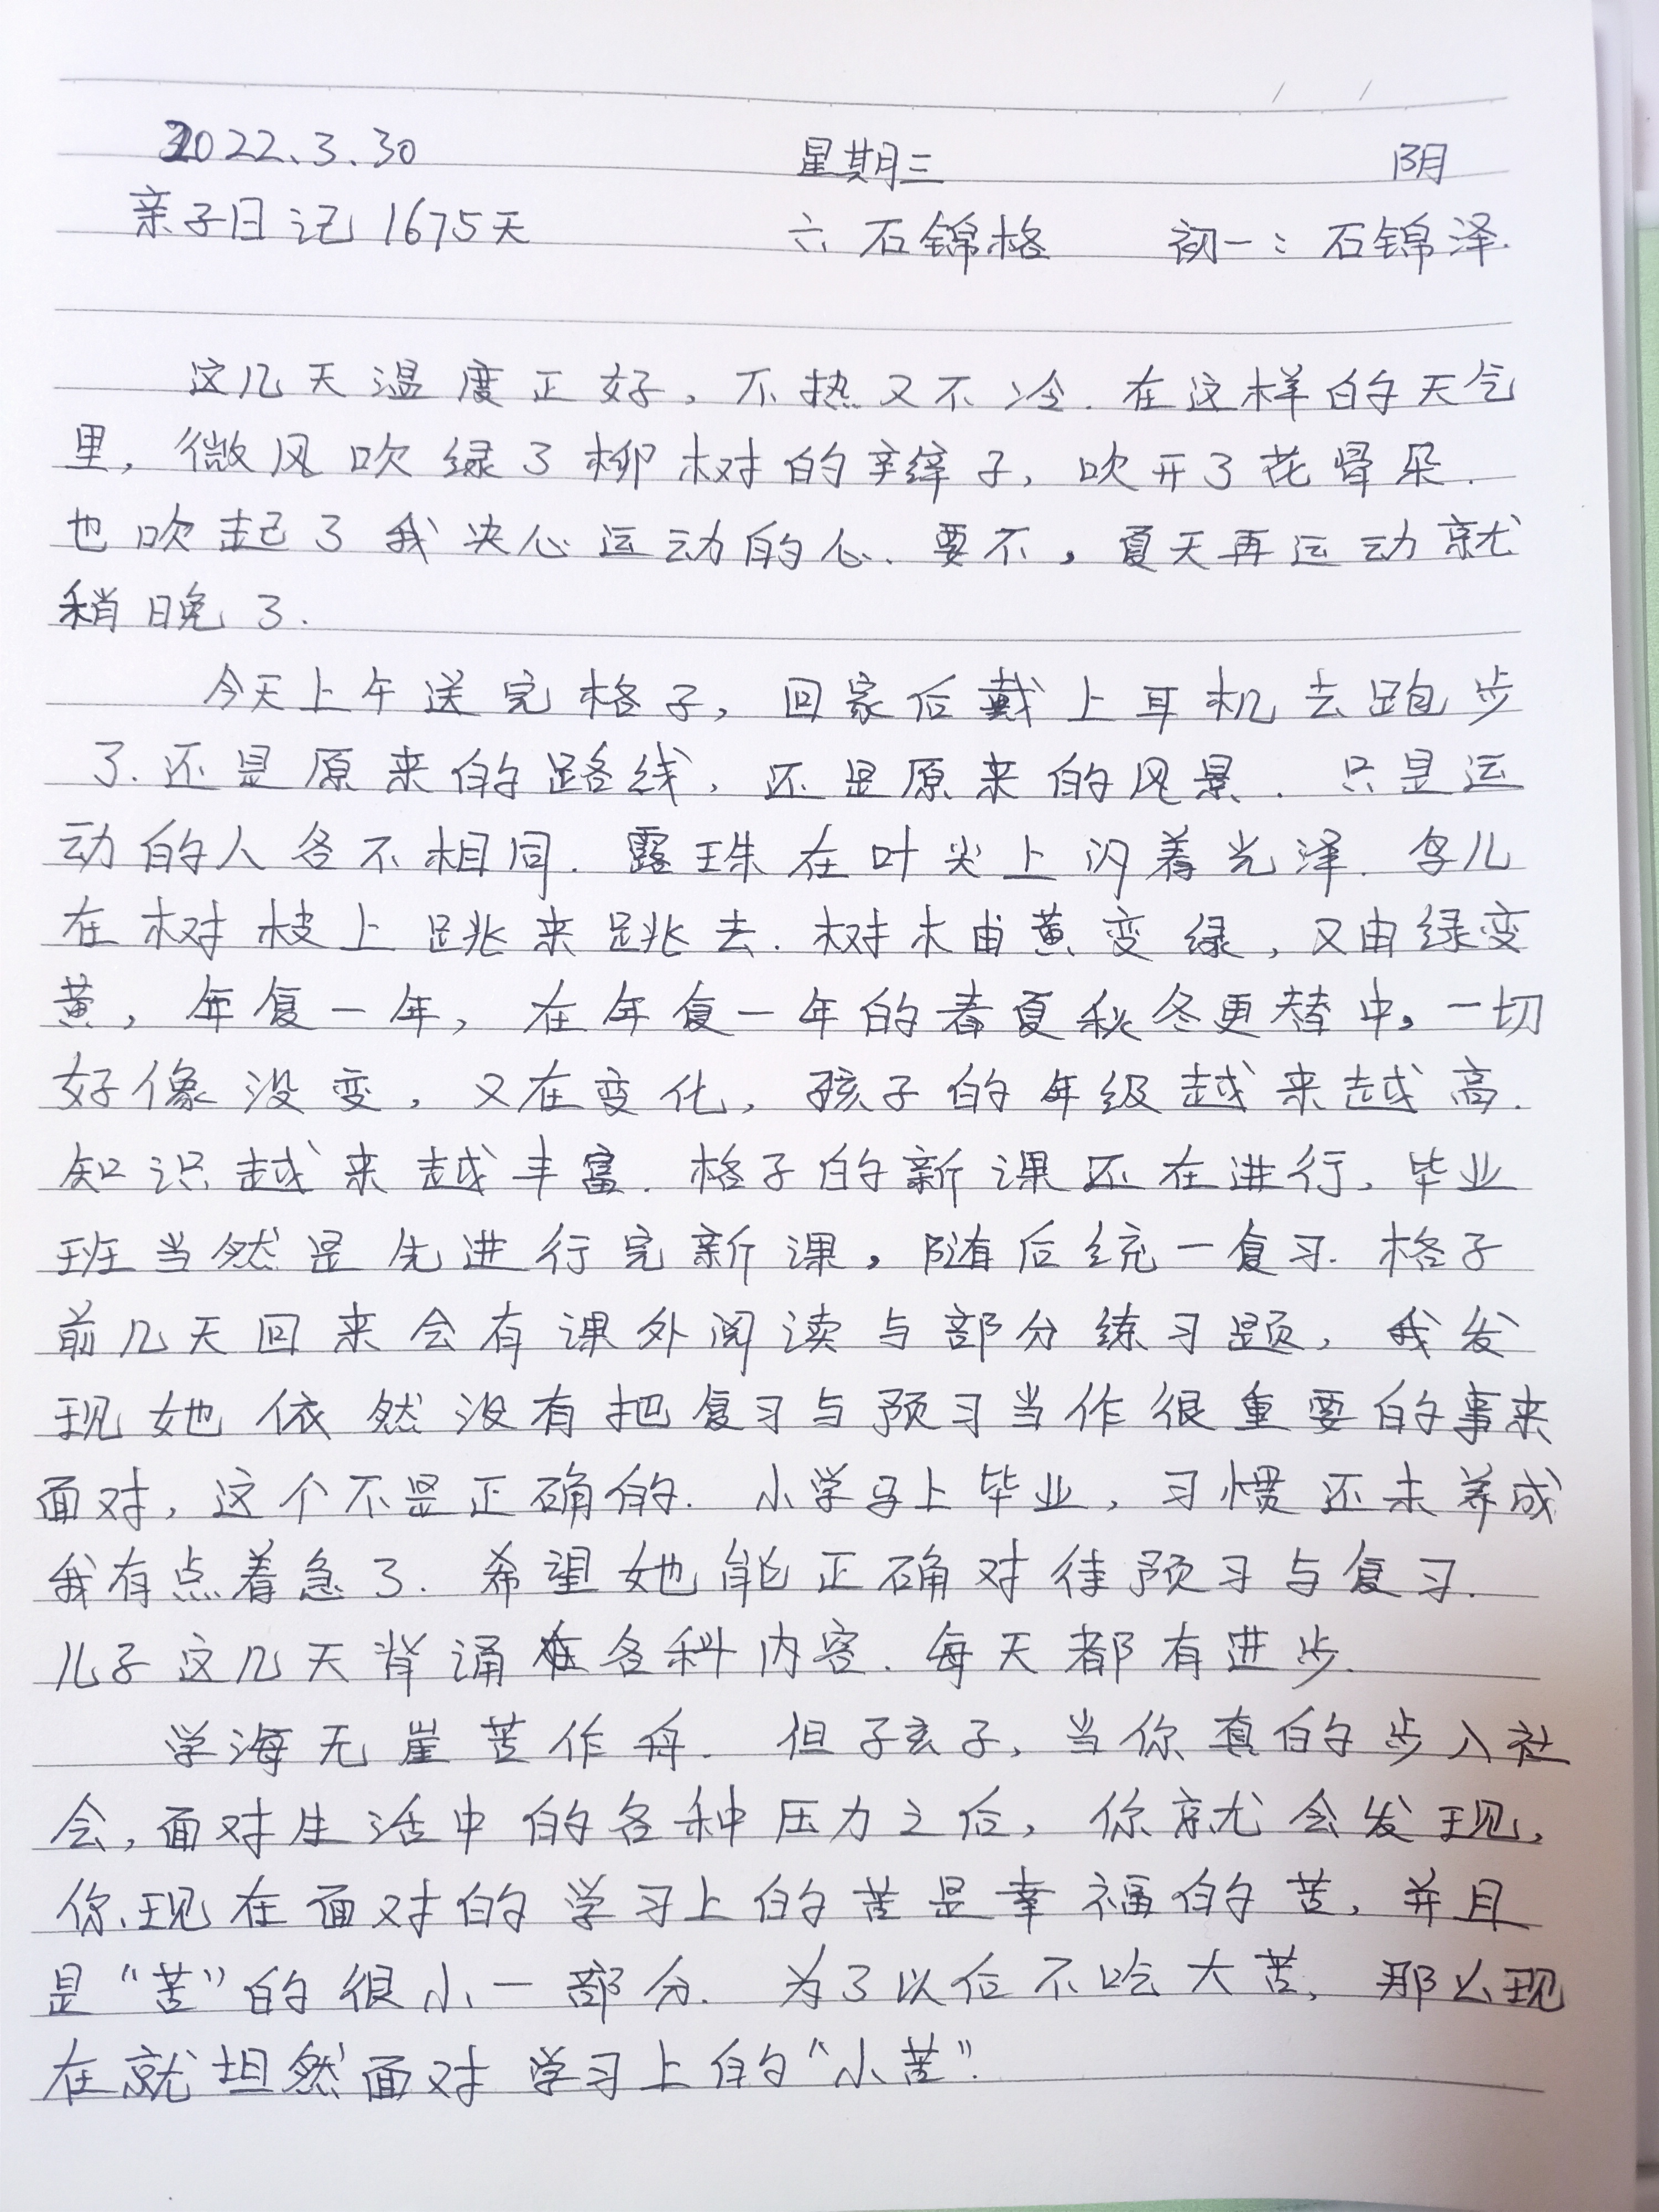 2022.3.30 星期三 阴
亲子日记1675天 六 石锦格 初一：石锦泽.
这几天温度正好，不热又不冷.在这样的天气
里，微风吹绿了柳树的辫子，吹开了花骨朵.
也吹起了我决心运动的心.要不，夏天再运动就
稍晚了.
今天上午送完格子，回家后戴上耳机去跑步
了.还是原来的路线，还是原来的风景.只是运
动的人各不相同.露珠在叶尖上闪着光泽.鸟儿
在树枝上跳来跳去.树木由黄变绿，又由绿变
黄，年复一年，在年复一年的春夏秋冬更替中，一切
好像没变，又在变化，孩子的年级越来越高.
知识越来越丰富.格子的新课还在进行，毕业
班当然是先进行完新课，随后统一复习.格子
前几天回来会有课外阅读与部分练习题，我发
现她依然没有把复习与预习当作很重要的事来
面对，这个不是正确的.小学马上毕业，习惯还未养成
我有点着急了.希望她能正确对待预习与复习.
儿子这几天背诵在各科内容.每天都有进步.
学海无崖苦作舟.但孩子，当你真的步入社
会，面对生活中的各种压力之后，你就会发现，
你现在面对的学习上的苦是幸福的苦，并且
是“苦”的很小一部分.为了以后不吃大苦，那么现
在就坦然面对学习上的“小苦”.